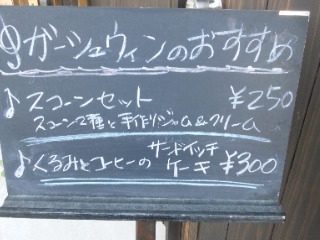 ガーシュウィンのおすすめ
♪スコーンセット ¥250
スコーン2種と手作りジャム&クリーム
♪くるみとコーヒーのサンドイッチケーキ ¥300